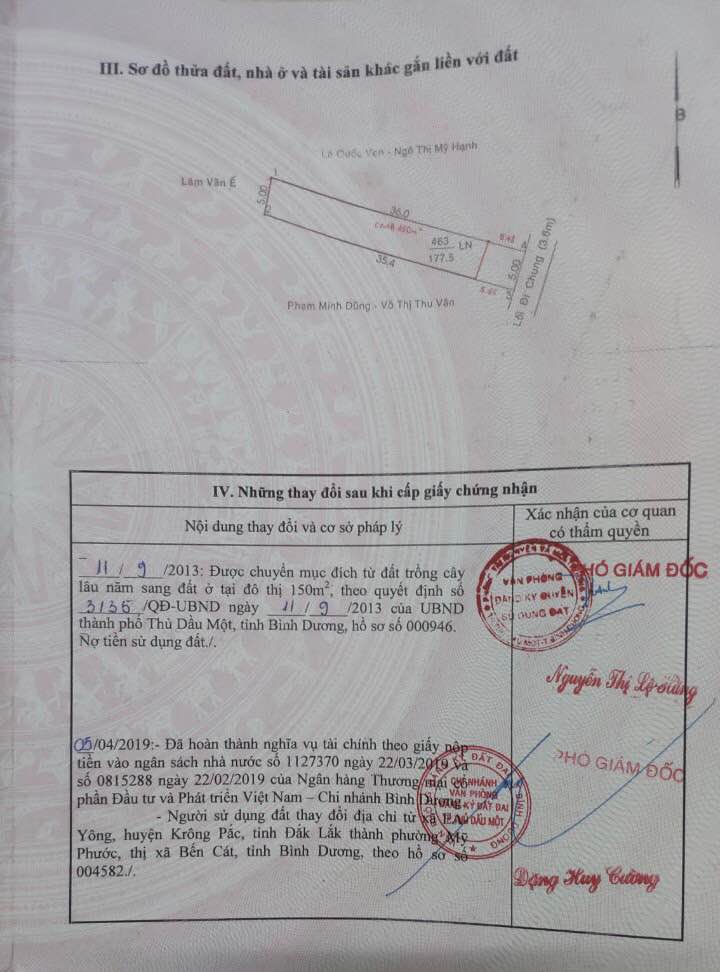 III. Sơ đồ thửa đất, nhà ở và tài sản khác gắn liền với đất
B
Lê Quốc Vẹn - Ngô Thị Mỹ Hạnh
Lâm Văn Ế
1
5.00
2
36.0
463
177.5
LN
35.4
4
5.00
3
Lối Đi Chung (3.6m)
Phạm Minh Dũng - Võ Thị Thu Vân
IV. Những thay đổi sau khi cấp giấy chứng nhận
Nội dung thay đổi và cơ sở pháp lý
Xác nhận của cơ quan
có thẩm quyền
11 / 9 /2013: Được chuyển mục đích từ đất trồng cây
lâu năm sang đất ở tại đô thị 150m², theo quyết định số
3135 /QĐ-UBND ngày 11 / 9 /2013 của UBND
thành phố Thủ Dầu Một, tỉnh Bình Dương, hồ sơ số 000946.
Nợ tiền sử dụng đất./.
PHÓ GIÁM ĐỐC
VĂN PHÒNG
ĐĂNG KÝ QUYỀN
SỬ DỤNG ĐẤT
Nguyễn Thị Lệ Hằng
05/04/2019:- Đã hoàn thành nghĩa vụ tài chính theo giấy nộp
tiền vào ngân sách nhà nước số 1127370 ngày 22/03/2019 và
số 0815288 ngày 22/02/2019 của Ngân hàng Thương mại cổ
phần Đầu tư và Phát triển Việt Nam – Chi nhánh Bình Dương.
- Người sử dụng đất thay đổi địa chỉ từ xã EA
Yông, huyện Krông Pắc, tỉnh Đắk Lắk thành phường Mỹ
Phước, thị xã Bến Cát, tỉnh Bình Dương, theo hồ sơ số
004582./.
PHÓ GIÁM ĐỐC
CHI NHÁNH
VĂN PHÒNG
ĐĂNG KÝ ĐẤT ĐAI
THỦ DẦU MỘT
Đặng Huy Cường